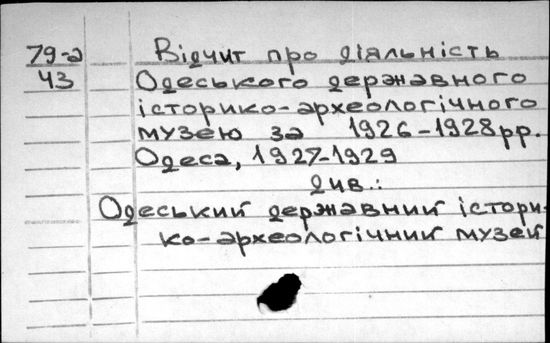 79-а Відчит про діяльність
43 Одеського державного
історико-археологічного
музею за 1926-1928рр.
Одеса, 1927-1929
див.:
Одеський державний істори-
ко-археологічний музей